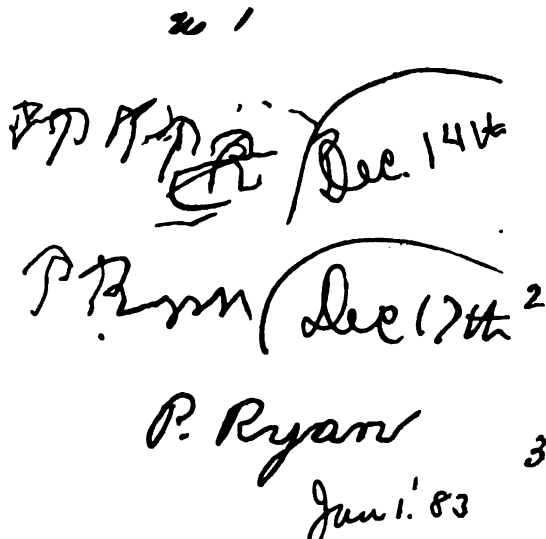 no 1
Dec. 14th
P Ryan Dec 17th 2
P. Ryan 3
Jan 1. '83